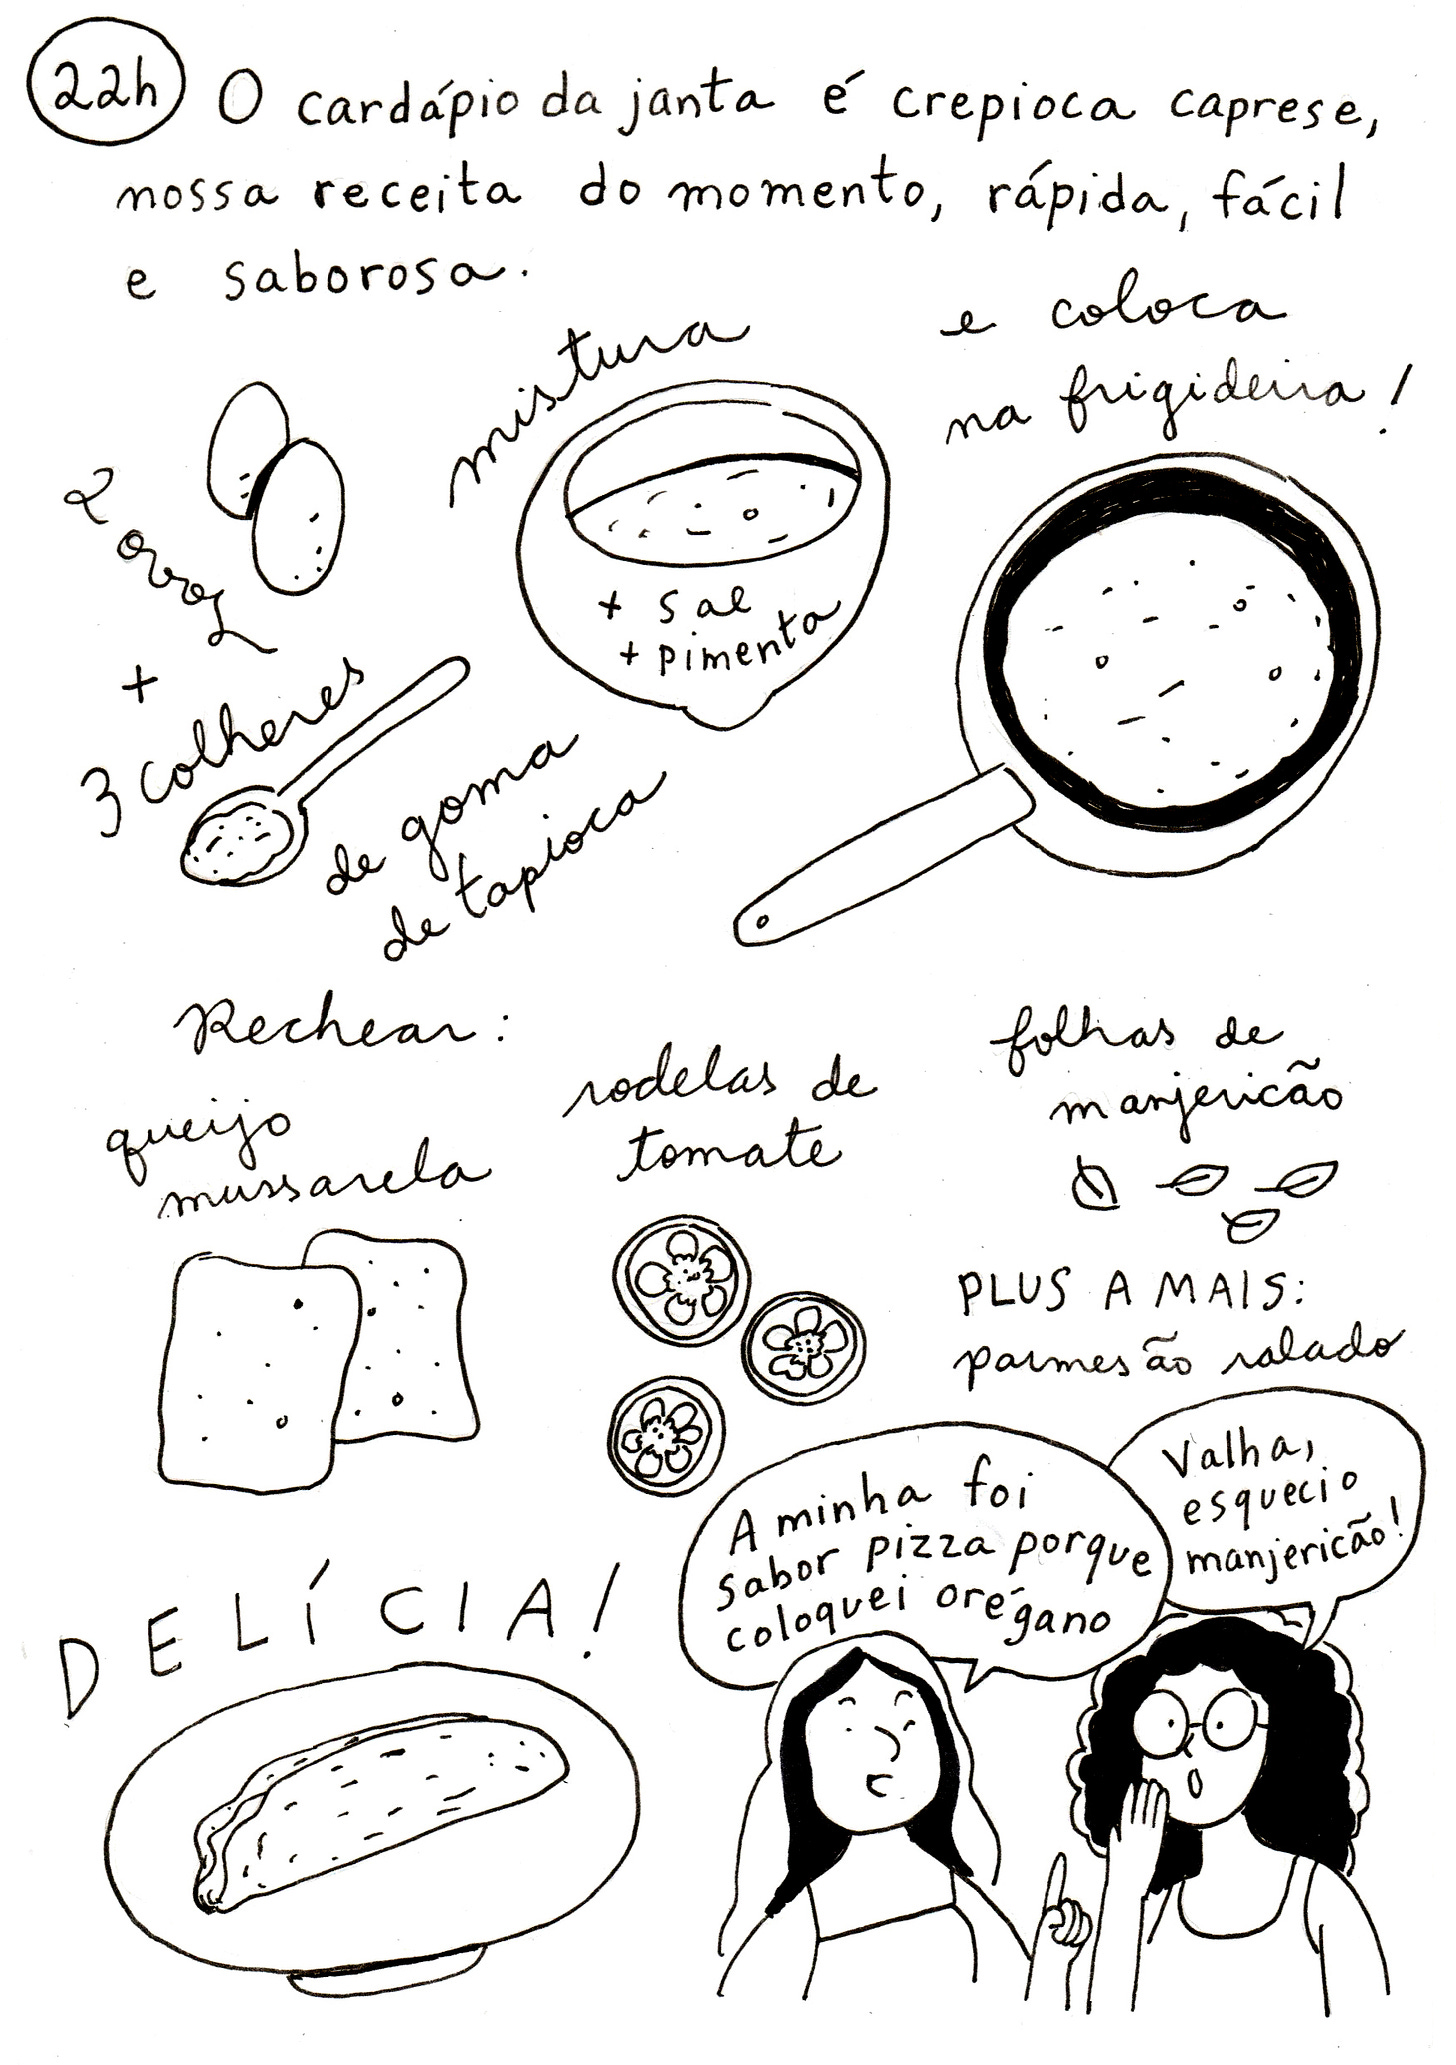 22h O cardápio da janta é crepioca caprese,
nossa receita do momento, rápida, fácil
e saborosa.
2 ovos
+
3 colheres
de goma
de tapioca
mistura
+ sal
+ pimenta
e coloca
na frigideira!
Rechear:
queijo
mussarela
rodelas de
tomate
folhas de
manjericão
PLUS A MAIS:
parmesão ralado
DELÍCIA!
A minha foi
sabor pizza porque
coloquei orégano
Valha,
esqueci o
manjericão!